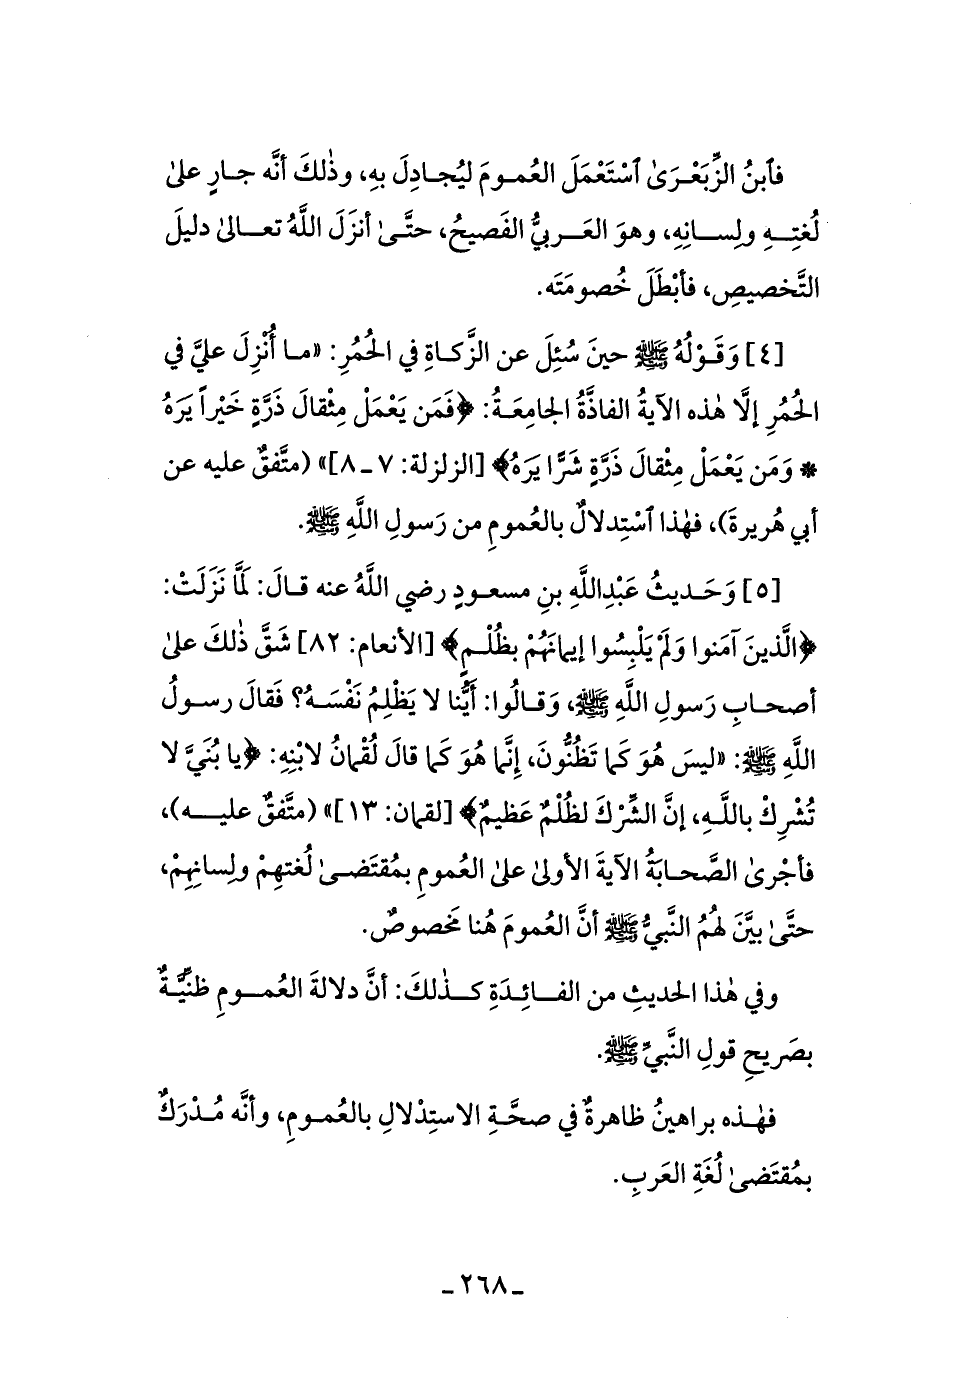 فٱبنُ الزِّبَعْـرَىٰ ٱسْتَعْمَلَ العُمـومَ ليُجـادِلَ بهِ، وذٰلكَ أنَّه جـارٍ علىٰ
لُغتِـــهِ ولِســـانِهِ، وهوَ العَـــربيُّ الفَصيحُ، حتَّـىٰ أنزَلَ اللَّهُ تعـــالىٰ دليلَ
التَّخصيصِ، فأبْطَلَ خُصومَتَه.
[٤] وَقَوْلُهُ ﷺ حينَ سُئِلَ عن الزَّكـاةِ في الحُمُرِ: «مـا أُنْزِلَ عليَّ في
الحُمُرِ إلَّا هٰذه الآيةُ الفاذَّةُ الجامِعَـةُ: ﴿فَمَن يَعْمَلْ مِثْقالَ ذَرَّةٍ خَيْراً يَرَهُ
* وَمَن يَعْمَلْ مِثْقالَ ذَرَّةٍ شَرًّا يَرَهُ﴾ [الزلزلة: ٧ـ٨]» (متَّفقٌ عليه عن
أبي هُريرةَ)، فهٰذا ٱسْتِدلالٌ بالعُمومِ من رَسولِ اللَّهِ ﷺ.
[٥] وَحَـديثُ عَبْدِاللَّهِ بنِ مسعـودٍ رضي اللَّهُ عنه قـالَ: لمَّا نَزَلَتْ:
﴿الَّذينَ آمَنوا وَلَمْ يَلْبِسُوا إيمانَهُمْ بظُلْـمٍ﴾ [الأنعام: ٨٢] شَقَّ ذٰلكَ علىٰ
أصحـابِ رَسولِ اللَّهِ ﷺ، وَقـالُوا: أيُّنا لا يَظْلِمُ نَفْسَـهُ؟ فَقالَ رسـولُ
اللَّهِ ﷺ: «ليسَ هُوَ كَما تَظُنُّونَ، إنَّما هُوَ كَما قالَ لُقْمانُ لابْنِهِ: ﴿يا بُنَيَّ لا
تُشْرِكْ باللَّـهِ، إنَّ الشِّرْكَ لظُلْمٌ عَظيمٌ﴾ [لقمان: ١٣]» (متَّفقٌ عليـــه)،
فأجْرىٰ الصَّحـابَةُ الآيةَ الأولىٰ علىٰ العُمومِ بمُقتَضـىٰ لُغتهِمْ ولِسانِهِمْ،
حتَّىٰ بيَّنَ لهُمُ النَّبيُّ ﷺ أنَّ العُمومَ هُنا مَخصوصٌ.
وفي هٰذا الحديثِ من الفـائِدَةِ كـــذٰلكَ: أنَّ دلالةَ العُمـــومِ ظنِّيَّـةٌ
بصَريحِ قولِ النَّبيِّ ﷺ.
فهٰـذه براهينُ ظاهرةٌ في صحَّـةِ الاستِدْلالِ بالعُمـومِ، وأنَّه مُـدْرَكٌ
بمُقتَضىٰ لُغَةِ العَربِ.
ـ ٢٦٨ ـ